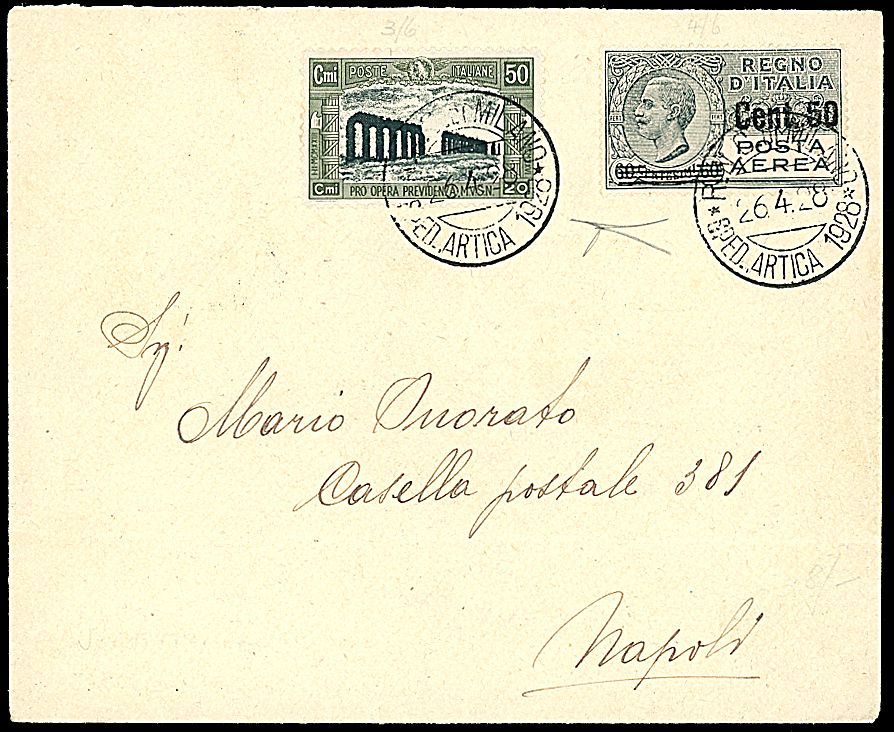 3/6
4/6
Cmi POSTE ITALIANE 50
Cmi 20
PRO OPERA PREVIDENZA M.V.S.N.
REGNO
D'ITALIA
Cent. 50
POSTA
AEREA
MILANO
24.4.28
SPED. ARTICA 1928
26.4.28
SPED. ARTICA 1928
Sig.
Mario Onorato
Casella postale 381
Napoli